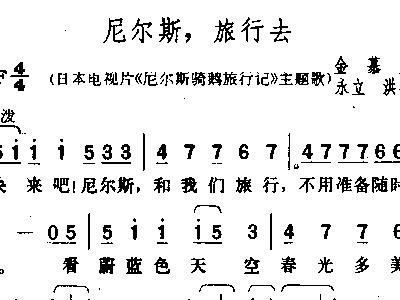 尼尔斯，旅行去
F 4/4 （日本电视片《尼尔斯骑鹅旅行记》主题歌） 金 慕
永立 洪
泼
5 1 1 1 5 3 3 | 4 7 7 6 7 | 7. 7 7 7 6 6
来 吧！尼尔斯，和 我 们 旅 行，不 用 准备 随时
— 0 5 | 5 1 1 1 1 5 | 4 7 7 6 7
。 看 蔚 蓝 色 天 空 春 光 多 美